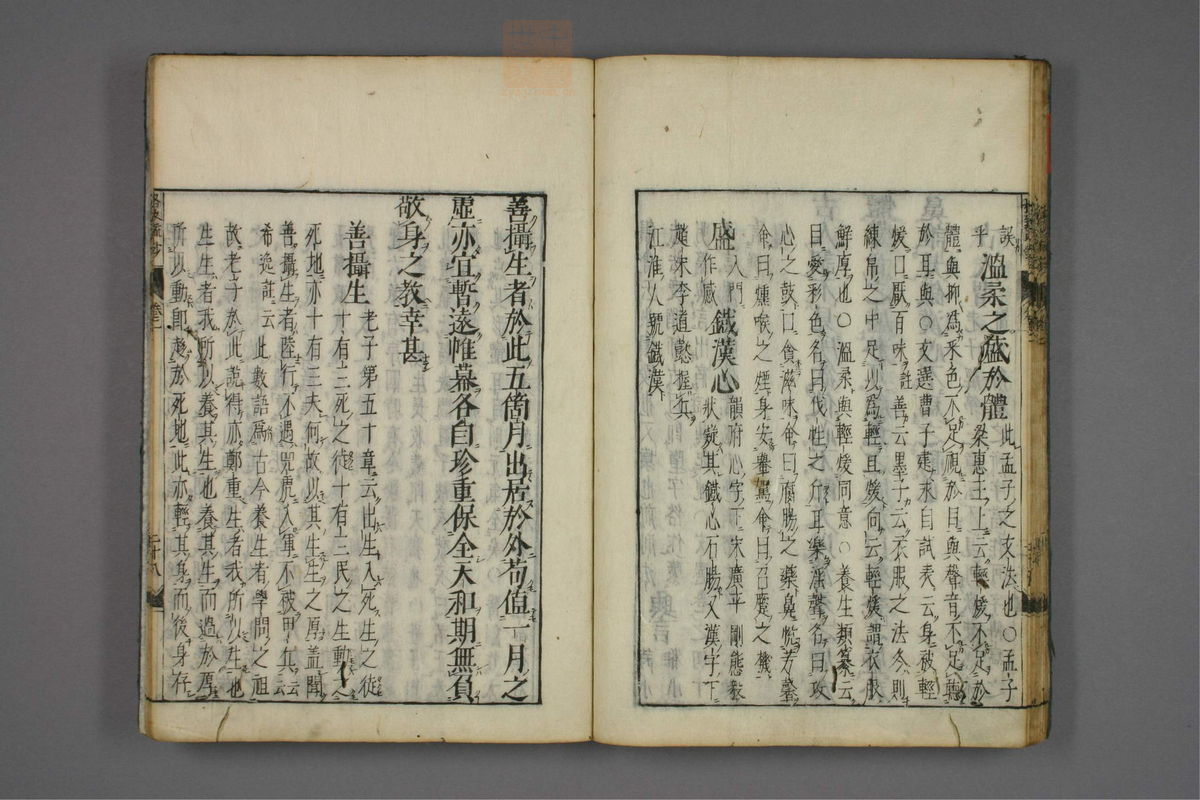 誤 溫柔之盛於體 此孟子之文法也○孟子
乎 梁惠王上云輕煖不足於
體與抑爲釆色不足視於目與聲音不足聽
於耳與○文選曹子建求自試表云身被輕
煖口厭百味註善云墨子云衣服之法冬則
練帛之中足以爲輕且煖向云輕煖謂衣服
鮮厚也○溫柔與輕煖同意○養生類纂云
目愛彩色名曰伐性之斤耳樂淫聲名曰攻
心之鼓口貪滋味命曰腐腸之藥鼻悅芳馨
命曰燻喉之煙身安轝駕命曰召蹷之機
盛 入門 鐵漢心 韻府心字下宋廣平剛態毅
作感 狀疑其鐵心石腸又漢字下
宋李道 握兵
江淮人號鐵漢
善攝生者於此五箇月出居於外苟値一月之
虛亦宜暫遠帷幕各自珍重保全天和期無負
敬身之教幸甚
善攝生 老子第五十章云出生入死生之徒
十有三死之徒十有三民之生動
死地亦十有三夫何故以其生生之厚盖聞
善攝生者陸行不遇兕虎入軍不被甲兵云云
希逸註云此數語爲古今養生者學問之祖
故老子於此說得亦鄭重生者我所以生也
生生者我所以養其生也養其生而過於厚
所以動卽趨於死地此亦輕其身而後身存
二十八